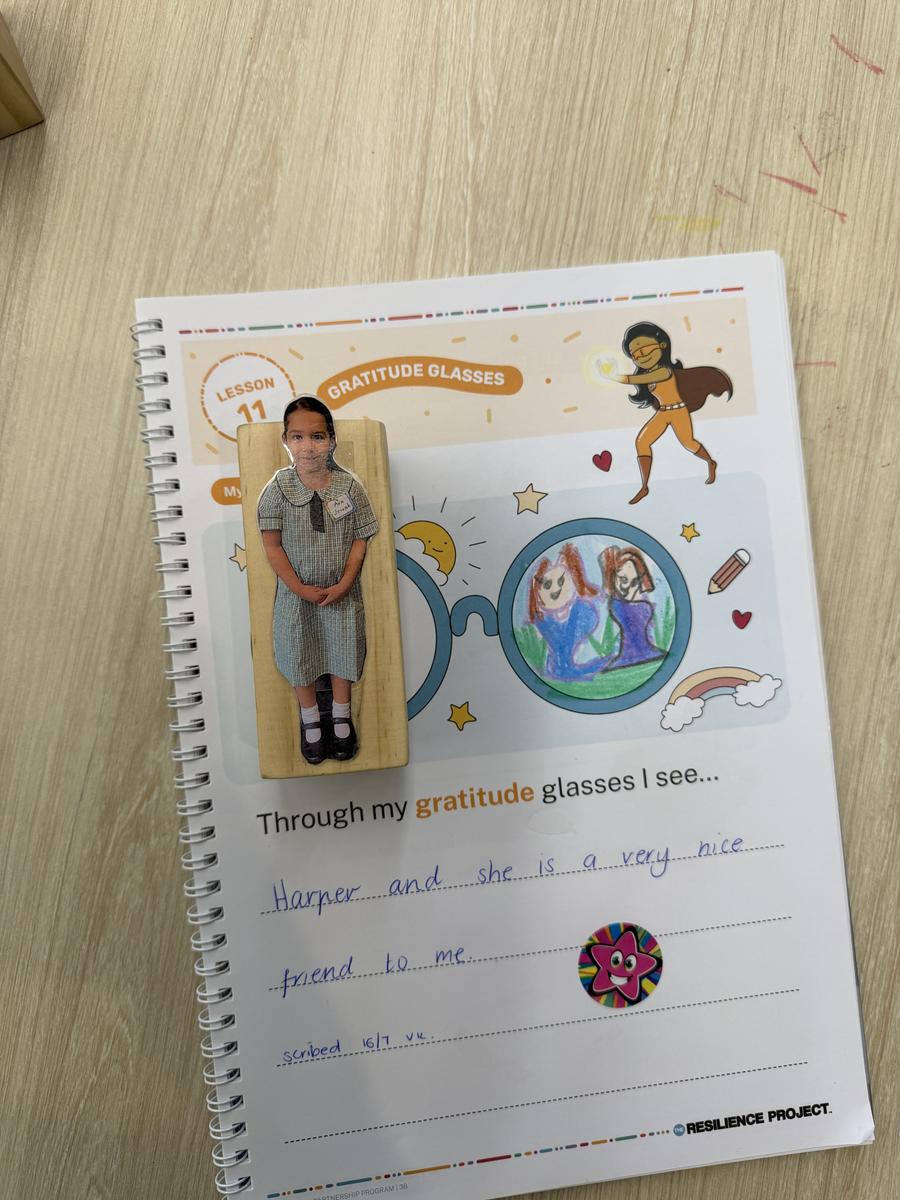 LESSON
11
GRATITUDE GLASSES
My
Through my gratitude glasses I see...
Harper and she is a very nice
friend to me.
scribed 16/7 VK.
THE RESILIENCE PROJECT.
PARTNERSHIP PROGRAM | 36